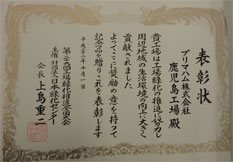 表彰状
プリマハム株式会社
鹿児島工場 殿
貴工場は工場緑化の推進に努力し
周辺地域の生活環境の向上に大きく
貢献されました
よってここに奨励の意を持って
記念品を贈りこれを表彰します
平成二十二年十月一日
第二十九回工場緑化推進全国大会
主催 財団法人日本緑化センター
会長 上島重二